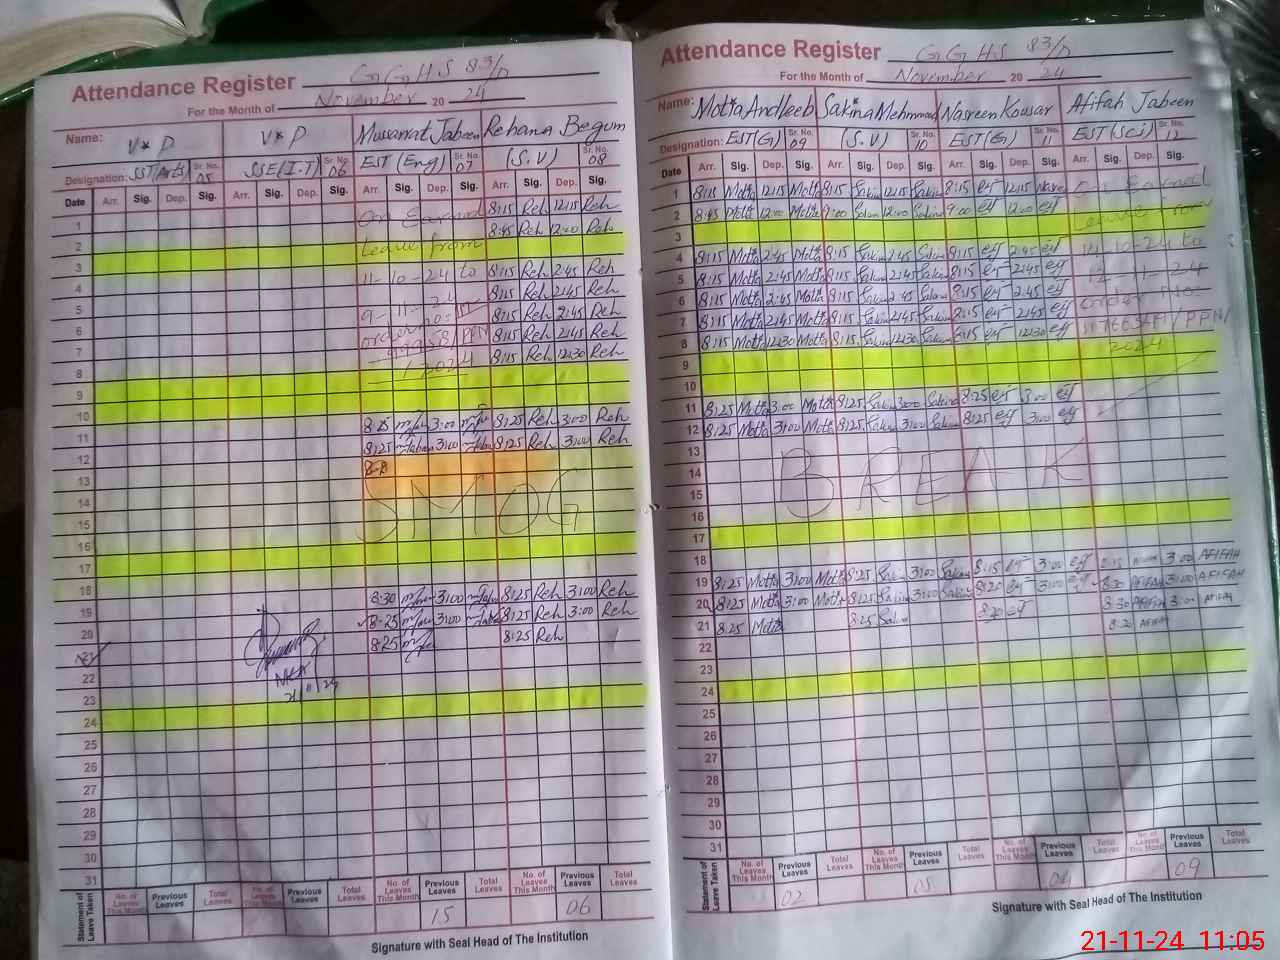 Attendance Register G G H S 83/D
For the Month of November 20 24
Name: V*P V*P Musarrat Jabeen Rehana Begum
Designation: SST(Arts) Sr. No. 05 SSE(I.T) Sr. No. 06 EST (Eng) Sr. No. 07 (S.V) Sr. No. 08
Date Arr. Sig. Dep. Sig. Arr. Sig. Dep. Sig. Arr. Sig. Dep. Sig. Arr. Sig. Dep. Sig.
1 On Earned 8:15 Reh 12:15 Reh
2 Leave from 8:45 Reh 12:00 Reh
3
4 11-10-24 to 8:15 Reh 2:45 Reh
5 9-11-24 8:15 Reh 2:45 Reh
6 order no: 8:15 Reh 2:45 Reh
7 8:15 Reh 2:45 Reh
8 2024 8:15 Reh 12:30 Reh
9
10
11 8:25 3:00 8:25 Reh 3:00 Reh
12 8:25 3:00 8:25 Reh 3:00 Reh
13
14 SMOG
15
16
17
18
19 8:30 3:00 8:25 Reh 3:00 Reh
20 8:25 3:00 8:25 Reh 3:00 Reh
21 8:25 8:25 Reh
22
23
24
25
26
27
28
29
30
31
Statement of Leave Taken No. of Leaves This Month Previous Leaves Total Leaves No. of Leaves This Month Previous Leaves Total Leaves No. of Leaves This Month Previous Leaves Total Leaves No. of Leaves This Month Previous Leaves Total Leaves
15 06
Signature with Seal Head of The Institution
Attendance Register G G H S 83/D
For the Month of November 20 24
Name: Motia Andleeb Sakina Mehmood Nasreen Kousar Afifah Jabeen
Designation: EST(G) Sr. No. 09 (S.V) Sr. No. 10 EST(G) Sr. No. 11 EST (Sci) Sr. No. 12
Date Arr. Sig. Dep. Sig. Arr. Sig. Dep. Sig. Arr. Sig. Dep. Sig. Arr. Sig. Dep. Sig.
1 8:15 Motia 12:15 Motia 8:15 Sakina 12:15 Sakina 8:15 12:15 On Earned
2 8:45 Motia 12:00 Motia 9:00 Sakina 12:00 Sakina 9:00 12:00 Leave from
3
4 8:15 Motia 2:45 Motia 8:15 Sakina 2:45 Sakina 8:15 2:45 14-10-24 to
5 8:15 Motia 2:45 Motia 8:15 Sakina 2:45 Sakina 8:15 2:45 12-11-24
6 8:15 Motia 2:45 Motia 8:15 Sakina 2:45 Sakina 8:15 2:45 order No:
7 8:15 Motia 2:45 Motia 8:15 Sakina 2:45 Sakina 8:15 2:45
8 8:15 Motia 12:30 Motia 8:15 Sakina 12:30 Sakina 8:15 12:30 2024
9
10
11 8:25 Motia 3:00 Motia 8:25 Sakina 3:00 Sakina 8:25 3:00
12 8:25 Motia 3:00 Motia 8:25 Sakina 3:00 Sakina 8:25 3:00
13
14 BREAK
15
16
17
18
19 8:25 Motia 3:00 Motia 8:25 Sakina 3:00 Sakina 8:15 3:00 3:00 AFIFAH
20 8:25 Motia 3:00 Motia 8:25 Sakina 3:00 Sakina 8:20 3:00 8:30 AFIFAH 3:00 AFIFAH
21 8:25 Motia 8:25 Sakina 8:20 8:30 AFIFAH 3:00 AFIFAH
22
23
24
25
26
27
28
29
30
31
Statement of Leave Taken No. of Leaves This Month Previous Leaves Total Leaves No. of Leaves This Month Previous Leaves Total Leaves No. of Leaves This Month Previous Leaves Total Leaves No. of Leaves This Month Previous Leaves Total Leaves
02 05 04 09
Signature with Seal Head of The Institution
21-11-24 11:05